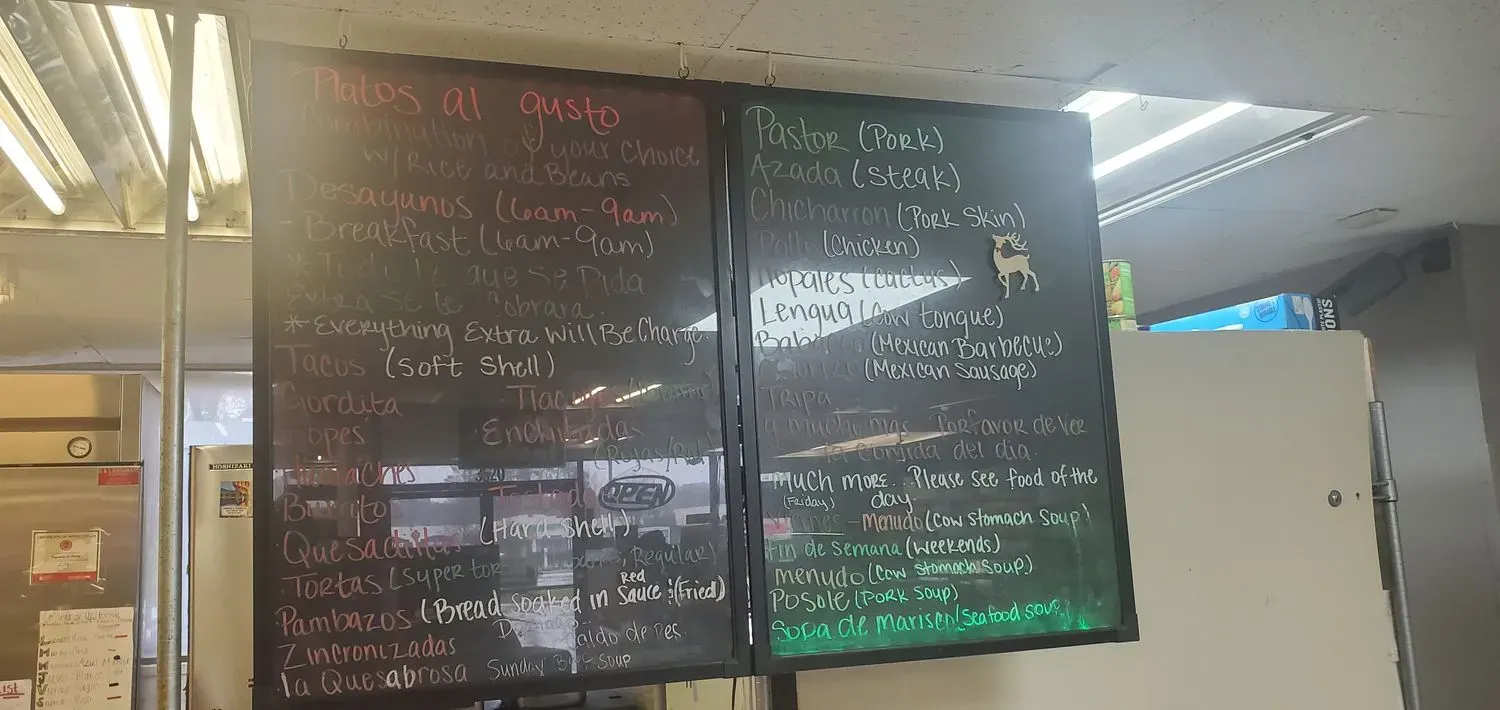 Platos al gusto
Combination of your choice
w/Rice and Beans
Desayunos (6am-9am)
- Breakfast (6am-9am)
que se pida
extra se le cobrara.
* Everything Extra Will Be Charge.
Tacos (Soft Shell)
Gordita
Sopes Enchiladas
Huaraches (Rojas/
Burritos Tostadas
OPEN
Quesadillas (Hard Shell)
Tortas (Super Regular)
Pambazos (Bread Soaked in Red Sauce :(Fried)
Zincronizadas Caldo de Res.
la Quesabrosa Sunday Beef Soup
Pastor (Pork)
Azada (Steak)
Chicharron (Pork Skin)
Pollo (Chicken)
Nopales (Cactus)
Lengua (Cow tongue)
(Mexican Barbecue)
(Mexican Sausage)
Tripa
y mucho mas Porfavor de ver
la comida del dia.
Much more... Please see food of the
(Friday) day.
Viernes - Menudo (Cow Stomach Soup)
Fin de Semana (Weekends)
Menudo (Cow Stomach Soup)
Posole (Pork Soup)
Sopa de Marisco (Seafood soup)
HOSHIZAKI